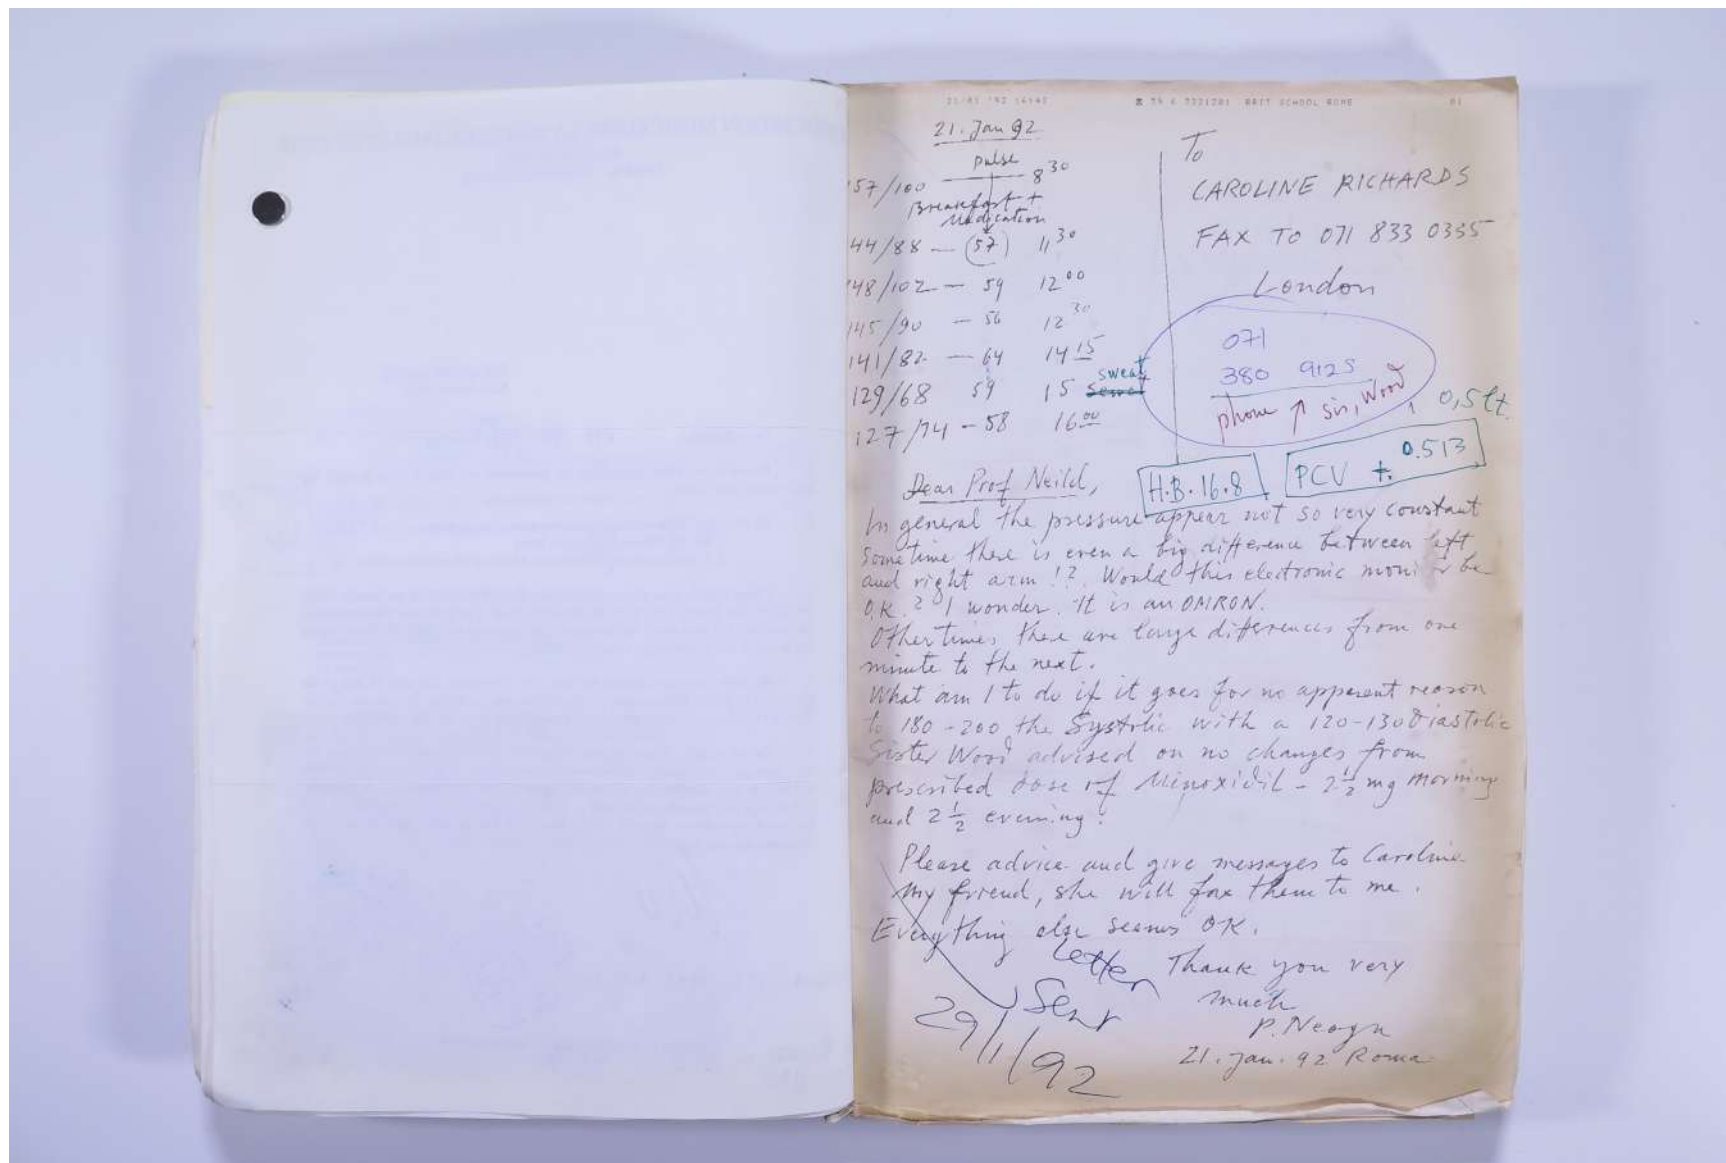 21/01 '92 16:42 39 6 3221201 BRIT SCHOOL ROME 01
21. Jan 92
pulse
57/100 8 30
Breakfast +
Medication
44/88 — (57) 11 30
48/102 — 59 12 00
145/90 — 56 12 30
141/82 — 64 14 15
129/68 59 15 sweat
127/74 - 58 16 00
To
CAROLINE RICHARDS
FAX TO 071 833 0335
London
071
380 9125
phone ↑ sis, Wood
0,5 lt.
H.B. 16.8
PCV 0.513
Dear Prof Neild,
In general the pressure appear not so very constant
Sometime there is even a big difference between left
and right arm !? Would this electronic monitor be
O.K.? I wonder. It is an OMRON.
Other times there are large differences from one
minute to the next.
What am I to do if it goes for no apparent reason
to 180-200 the Systolic with a 120-130 Diastolic
Sister Wood advised on no changes from
prescribed dose of Minoxidil - 2 1/2 mg morning
and 2 1/2 evening.
Please advice and give messages to Caroline
my friend, she will fax them to me.
Everything else seems OK.
Thank you very
much
P. Neagu
21. Jan. 92 Roma
letter
Sent
29/1/92